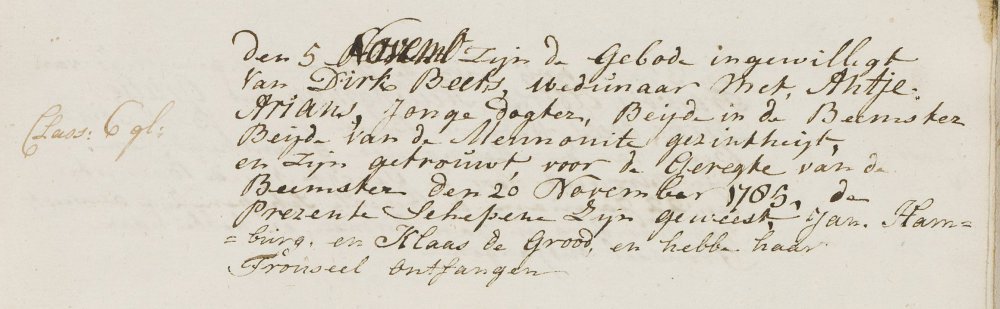 Den 5 Novemb Zyn de Gebode ingewilligt
van Dirk Beets, wedunaar met, Antje
Arians, Jonge dogter, Beijde in de Beemster
Beijde van de Mennonite gezintheijt,
Class: 6 gl:
en zijn getrouwt, voor de Geregte van de
Beemster den 20 November 1785, de
Prezente Schepene Zijn geweest, Jan. Ham=
=burg. en Klaas de Grood, en hebbe haar
Trouseel ontfangen